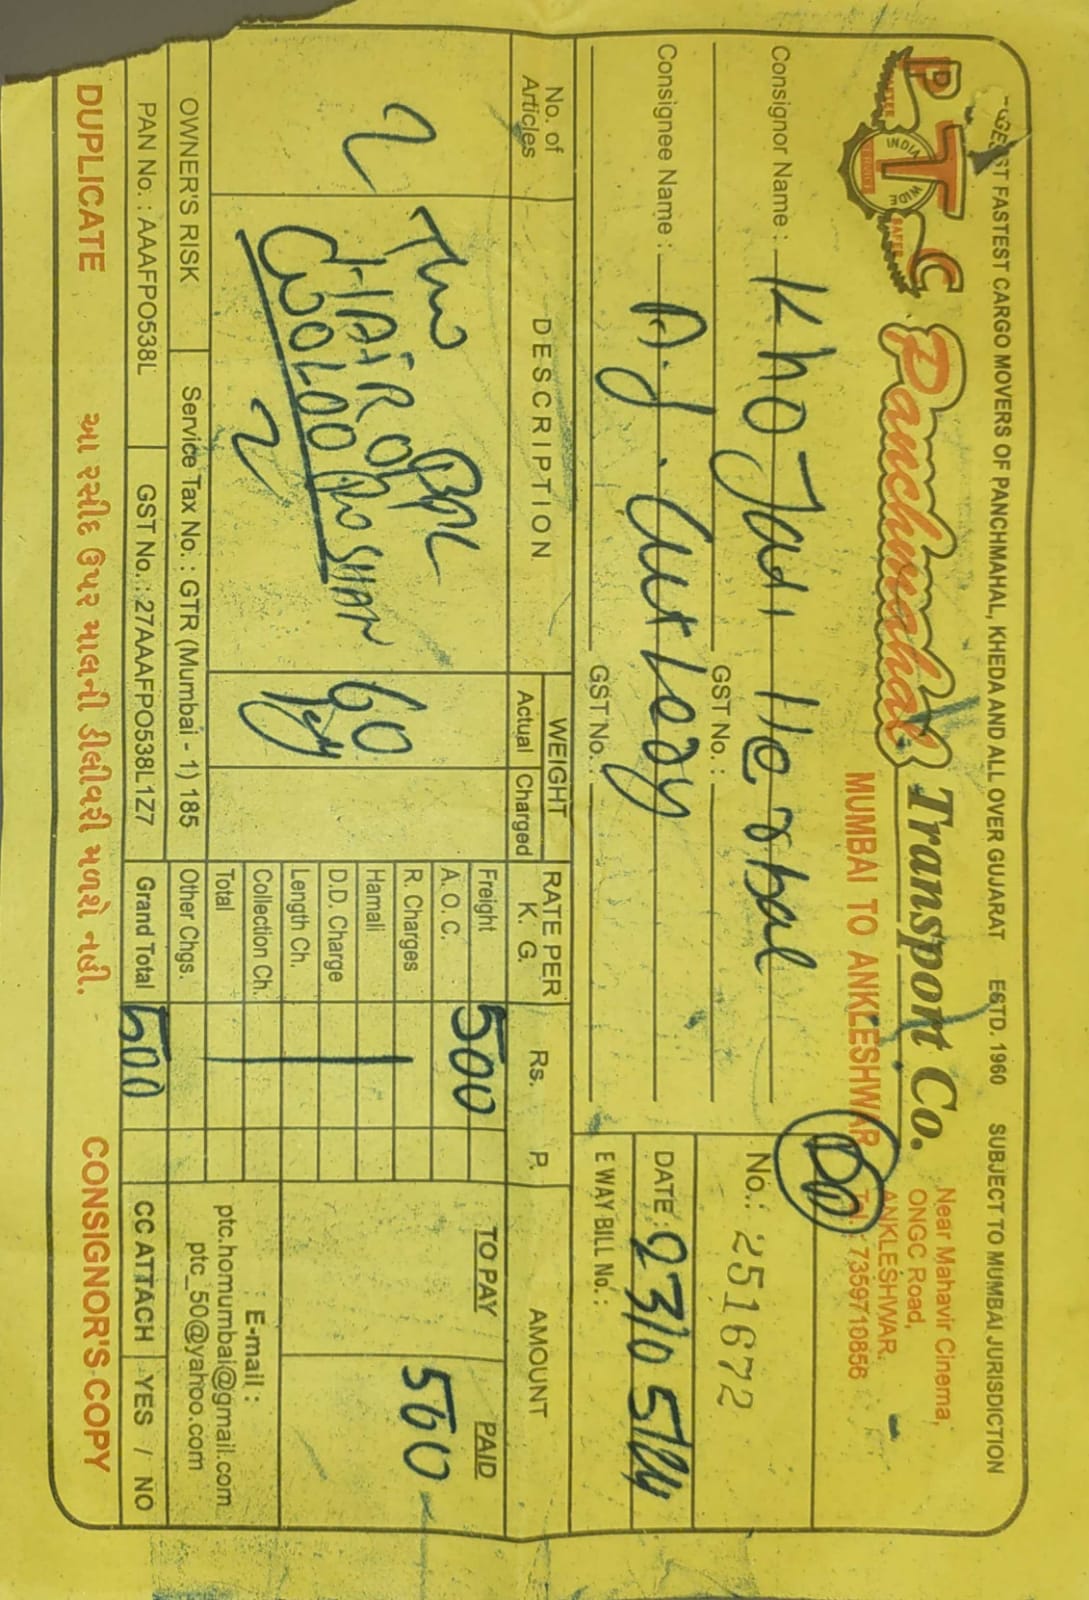 GEST FASTEST CARGO MOVERS OF PANCHMAHAL, KHEDA AND ALL OVER GUJARAT ESTD. 1960 SUBJECT TO MUMBAI JURISDICTION
PTC
INDIA WIDE
Panchmahal Transport Co.
MUMBAI TO ANKLESHWAR
Near Mahavir Cinema,
ONGC Road,
ANKLESHWAR.
Tel.: 7359710856
DD
Consignor Name : Khojati Herbal
GST No. :
No.: 251672
Consignee Name : A.J. Aurvedy
GST No. :
DATE : 23/05/24
E WAY BILL No. :
No. of Articles
DESCRIPTION
WEIGHT
Actual Charged
RATE PER K. G.
Rs. P.
AMOUNT
2
Two
HAIR
2
60
Kg
Freight 500
A. O. C.
R. Charges
Hamali
D.D. Charge
Length Ch.
Collection Ch.
Total
Other Chgs.
Grand Total 500
TO PAY
PAID
500
E-mail :
ptc.homumbai@gmail.com
ptc_50@yahoo.com
OWNER'S RISK
Service Tax No. : GTR (Mumbai - 1) 185
PAN No. : AAAFPO538L
GST No. : 27AAAFPO538L1Z7
CC ATTACH YES / NO
DUPLICATE
આ રસીદ ઉપર માલની ડીલીવરી મળશે નહી.
CONSIGNOR'S COPY